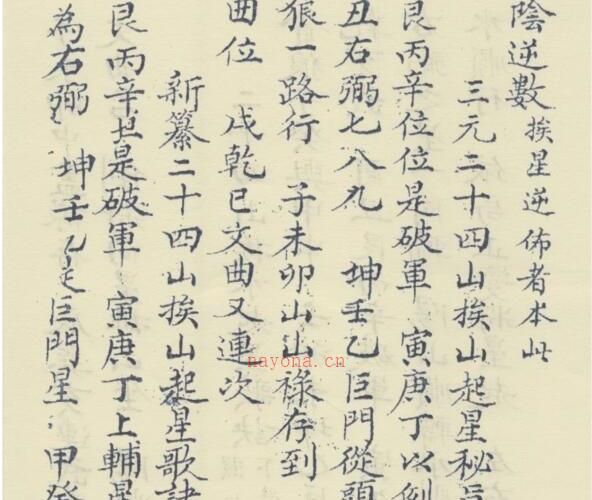 陰逆數 挨星逆佈者本此
三元二十四山挨山起星秘
艮丙辛位位是破軍 寅庚丁以例
丑右弼七八九 坤壬乙巨門從頭
狼一路行 子未卯山山祿存到
曲位 戌乾巳文曲又連次
新纂二十四山挨山起星歌訣
艮丙辛是破軍 寅庚丁上輔星
為右弼 坤壬乙是巨門星 甲癸
nayona.cn